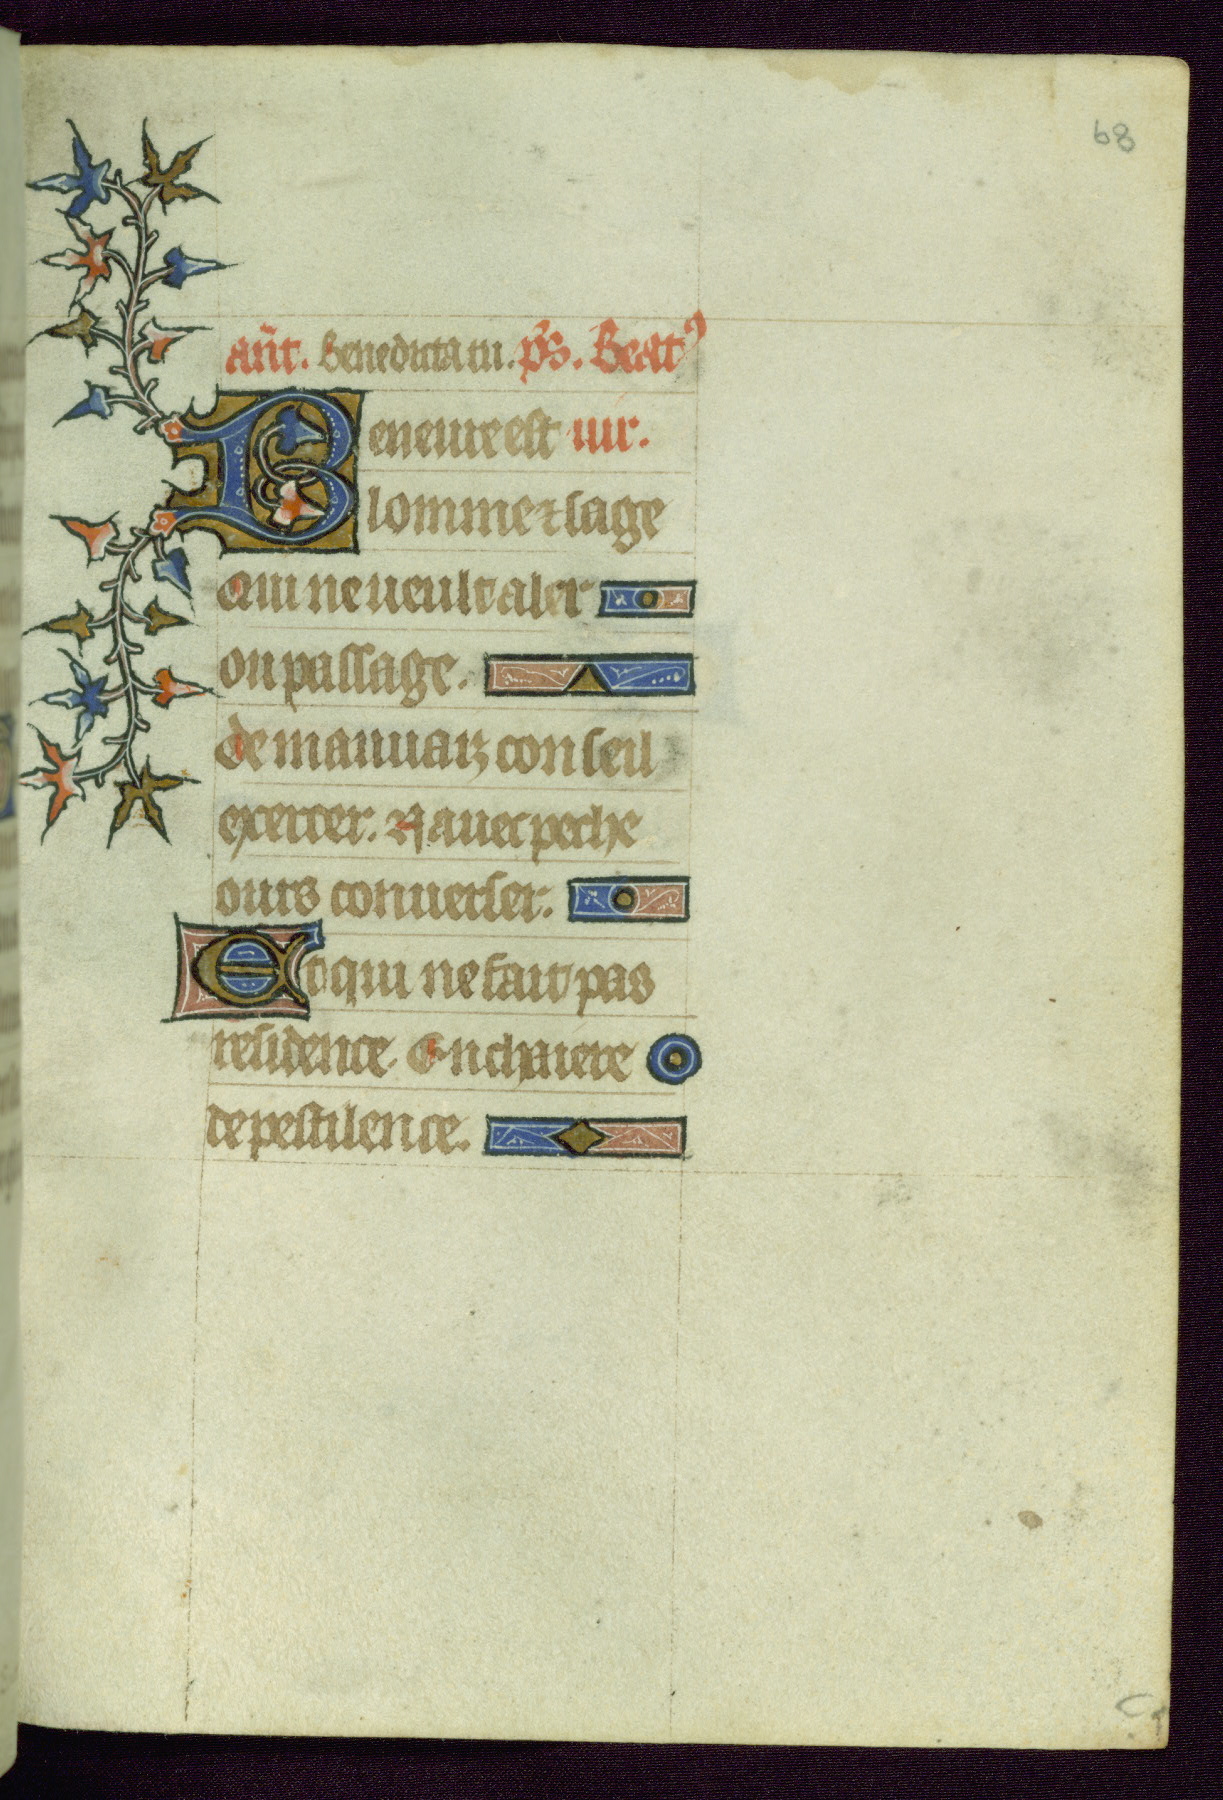 68
añt. Benedicta tu. p̄s. Beatꝰ
Beneure est uir.
lomme ⁊ sage
Qui ne ueult aler
ou passage.
de mauuaiz conseil
excercer. N auec peche
ours conuerser.
Et qui ne fait pas
residence. En chaiere
de pestilence.